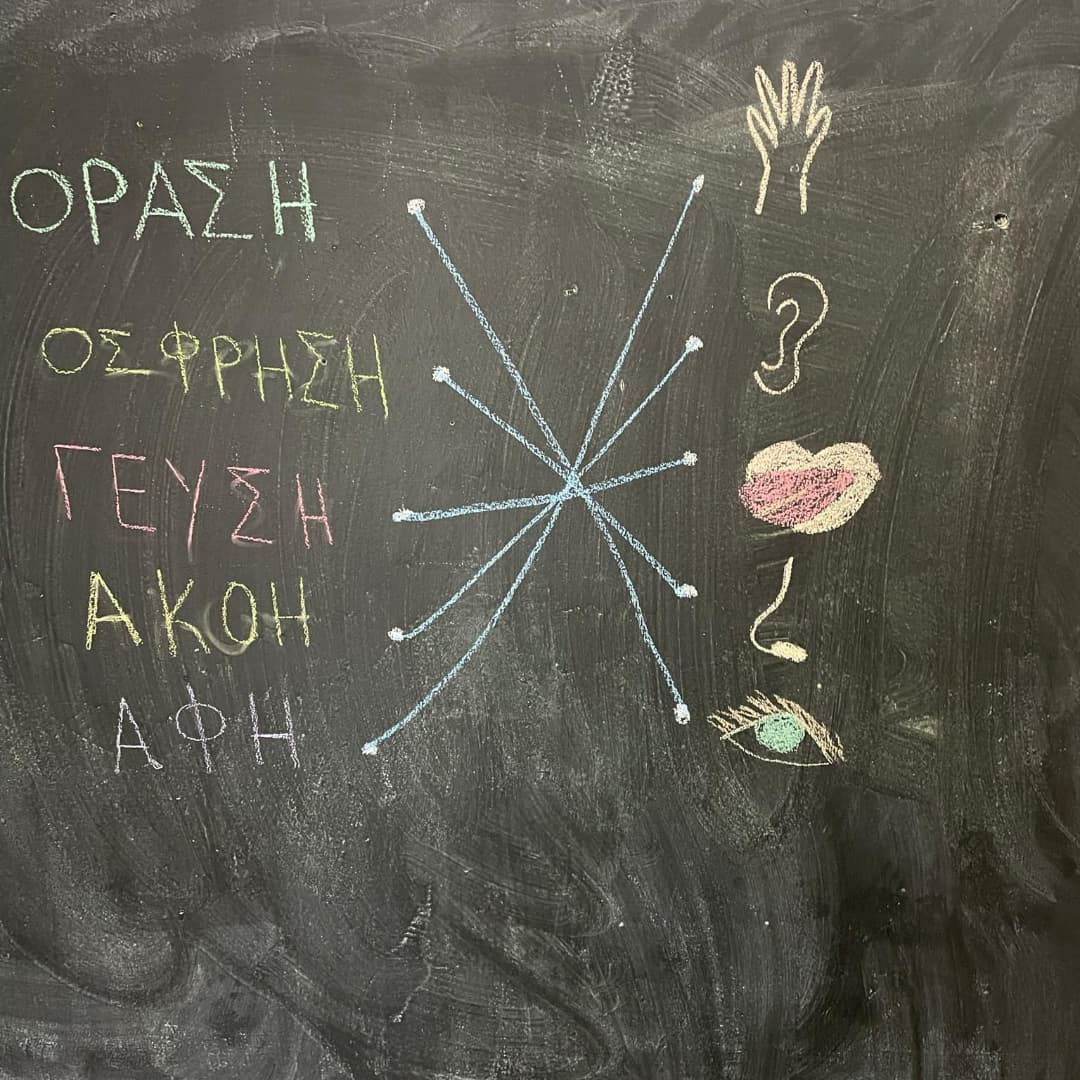 ΟΡΑΣΗ
ΟΣΦΡΗΣΗ
ΓΕΥΣΗ
ΑΚΟΗ
ΑΦΗ